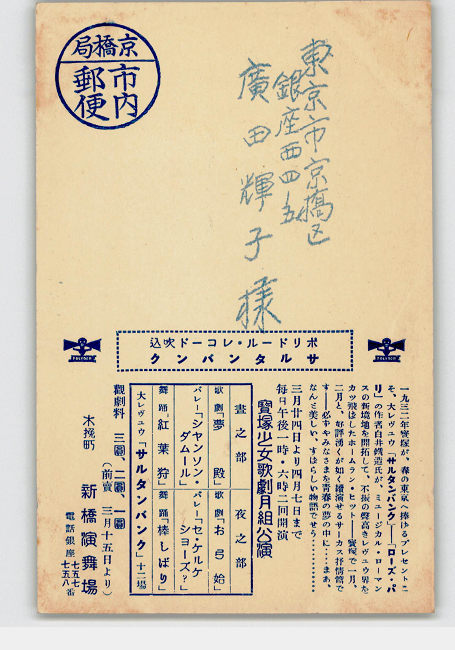 京橋局
市内
郵便
東京市京橋区
銀座西四ノ五
廣田輝子様
ポリドール・レコード吹込
サルタンバンク
一九三二年寳塚が、春の東京へ捧げるプレゼントこ
そ、大レヴュウ「サルタンバンク」――「ローズ・パ
リ」の作者白井鐵造氏が、ミュージカル・ローマン
スの新境地を開拓して、不振の聲高きレヴュウ界を
カッ飛ばしたホームラン・ヒット――寳塚で一月、
二月と、好評湧くが如く續演せるサーカス抒情篇で
す――必ずやみなさまを青春の夢の中に……まあ、
なんと美しい、すばらしい物語でせう…………
寳塚少女歌劇月組公演
三月廿四日より四月七日まで
毎日午後一時・六時二回開演
晝之部
歌劇「夢殿」
バレー「シヤンソン・ダムール」
舞踊「紅葉狩」
夜之部
歌劇「お弓始」
バレー「セ・ケルケショーズ?」
舞踊「棒しばり」
大レヴュウ「サルタンバンク」十二場
觀劇料 三圓、二圓、一圓
(前賣 三月十五日より)
木挽町 新橋演舞場
電話銀座 七五七 七五八番